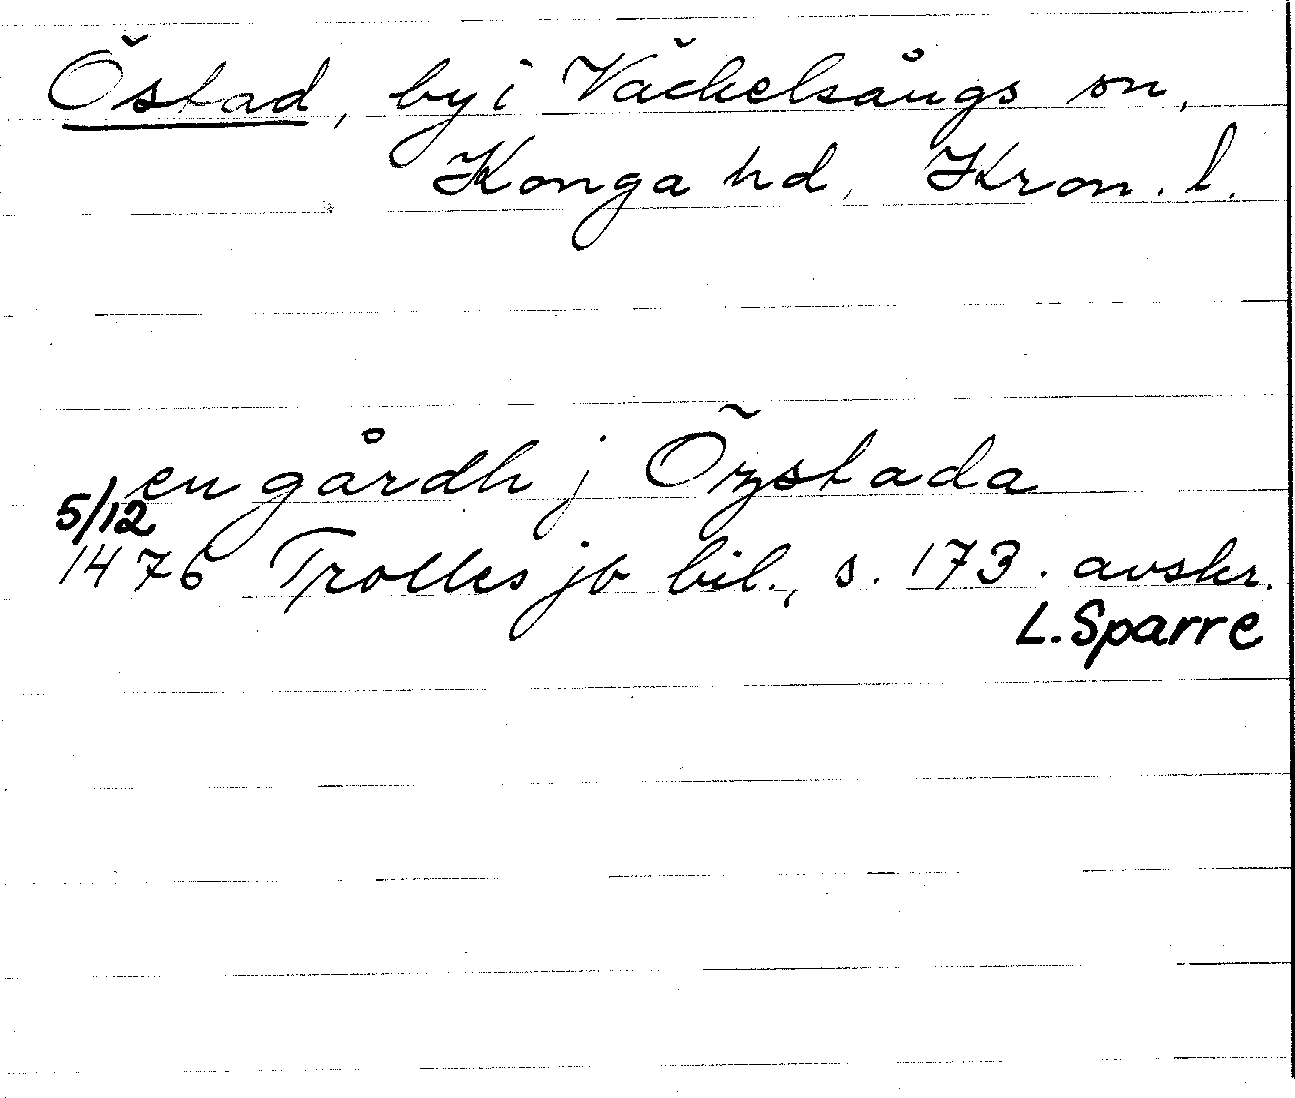 Östad, by i Väckelsångs sn,
Konga hd, Kron. l.
en gårdh j Özstada
5/12
1476 Trolles jb bil., s. 173. avskr.
L. Sparre